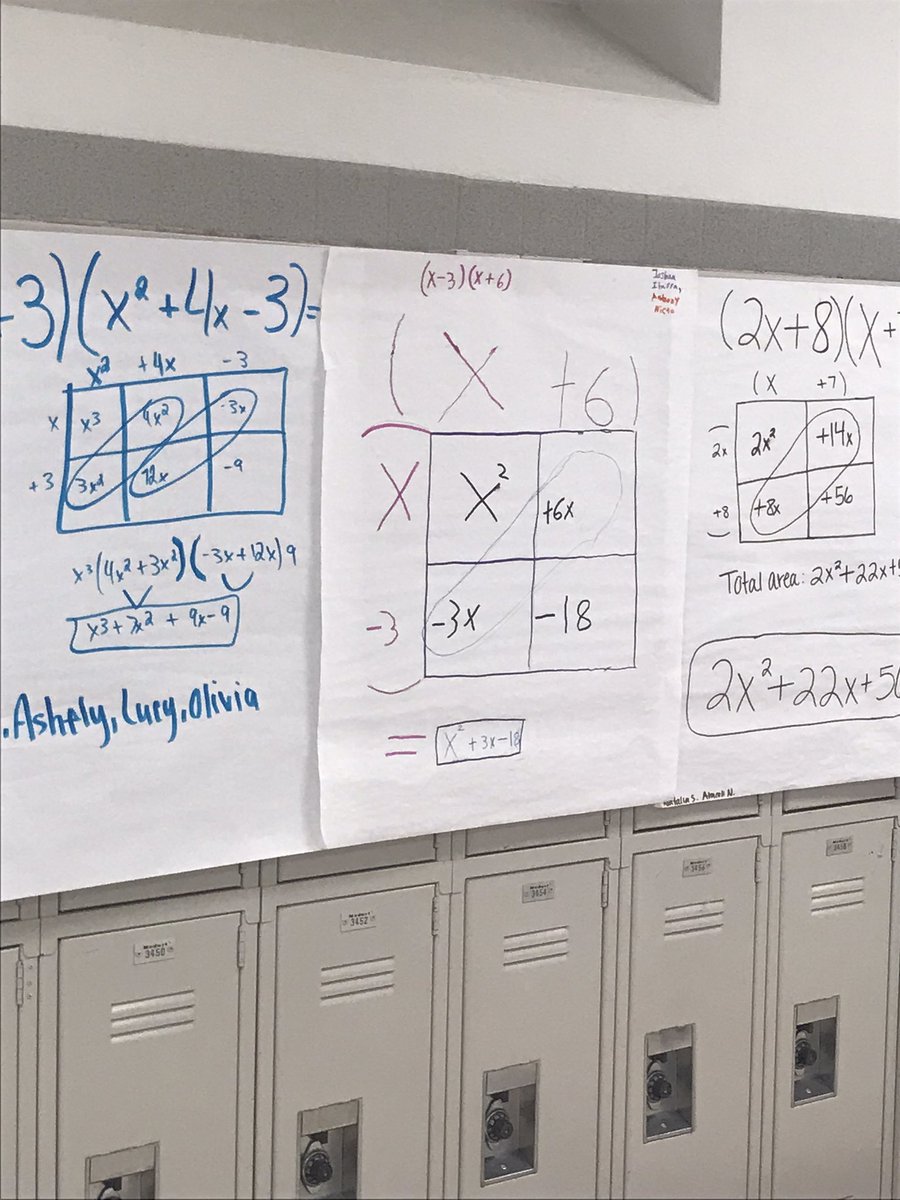 -3)(x²+4x-3)=
x² +4x -3
x x³ 4x² -3x
+3 3x² 12x -9
x³(4x²+3x²)(-3x+12x)9
x3+7x²+9x-9
.Ashely,Lucy,Olivia
(x-3)(x+6)
Joshua
Anthony
(X +6)
X X² +6x
-3 -3x -18
= X²+3x-18
(2x+8)(x+
(X +7)
2x 2x² +14x
+8 +8x +56
Total area: 2x²+22x+5
2x²+22x+5
Natalia S.
3450
3452
3454
3456
3458